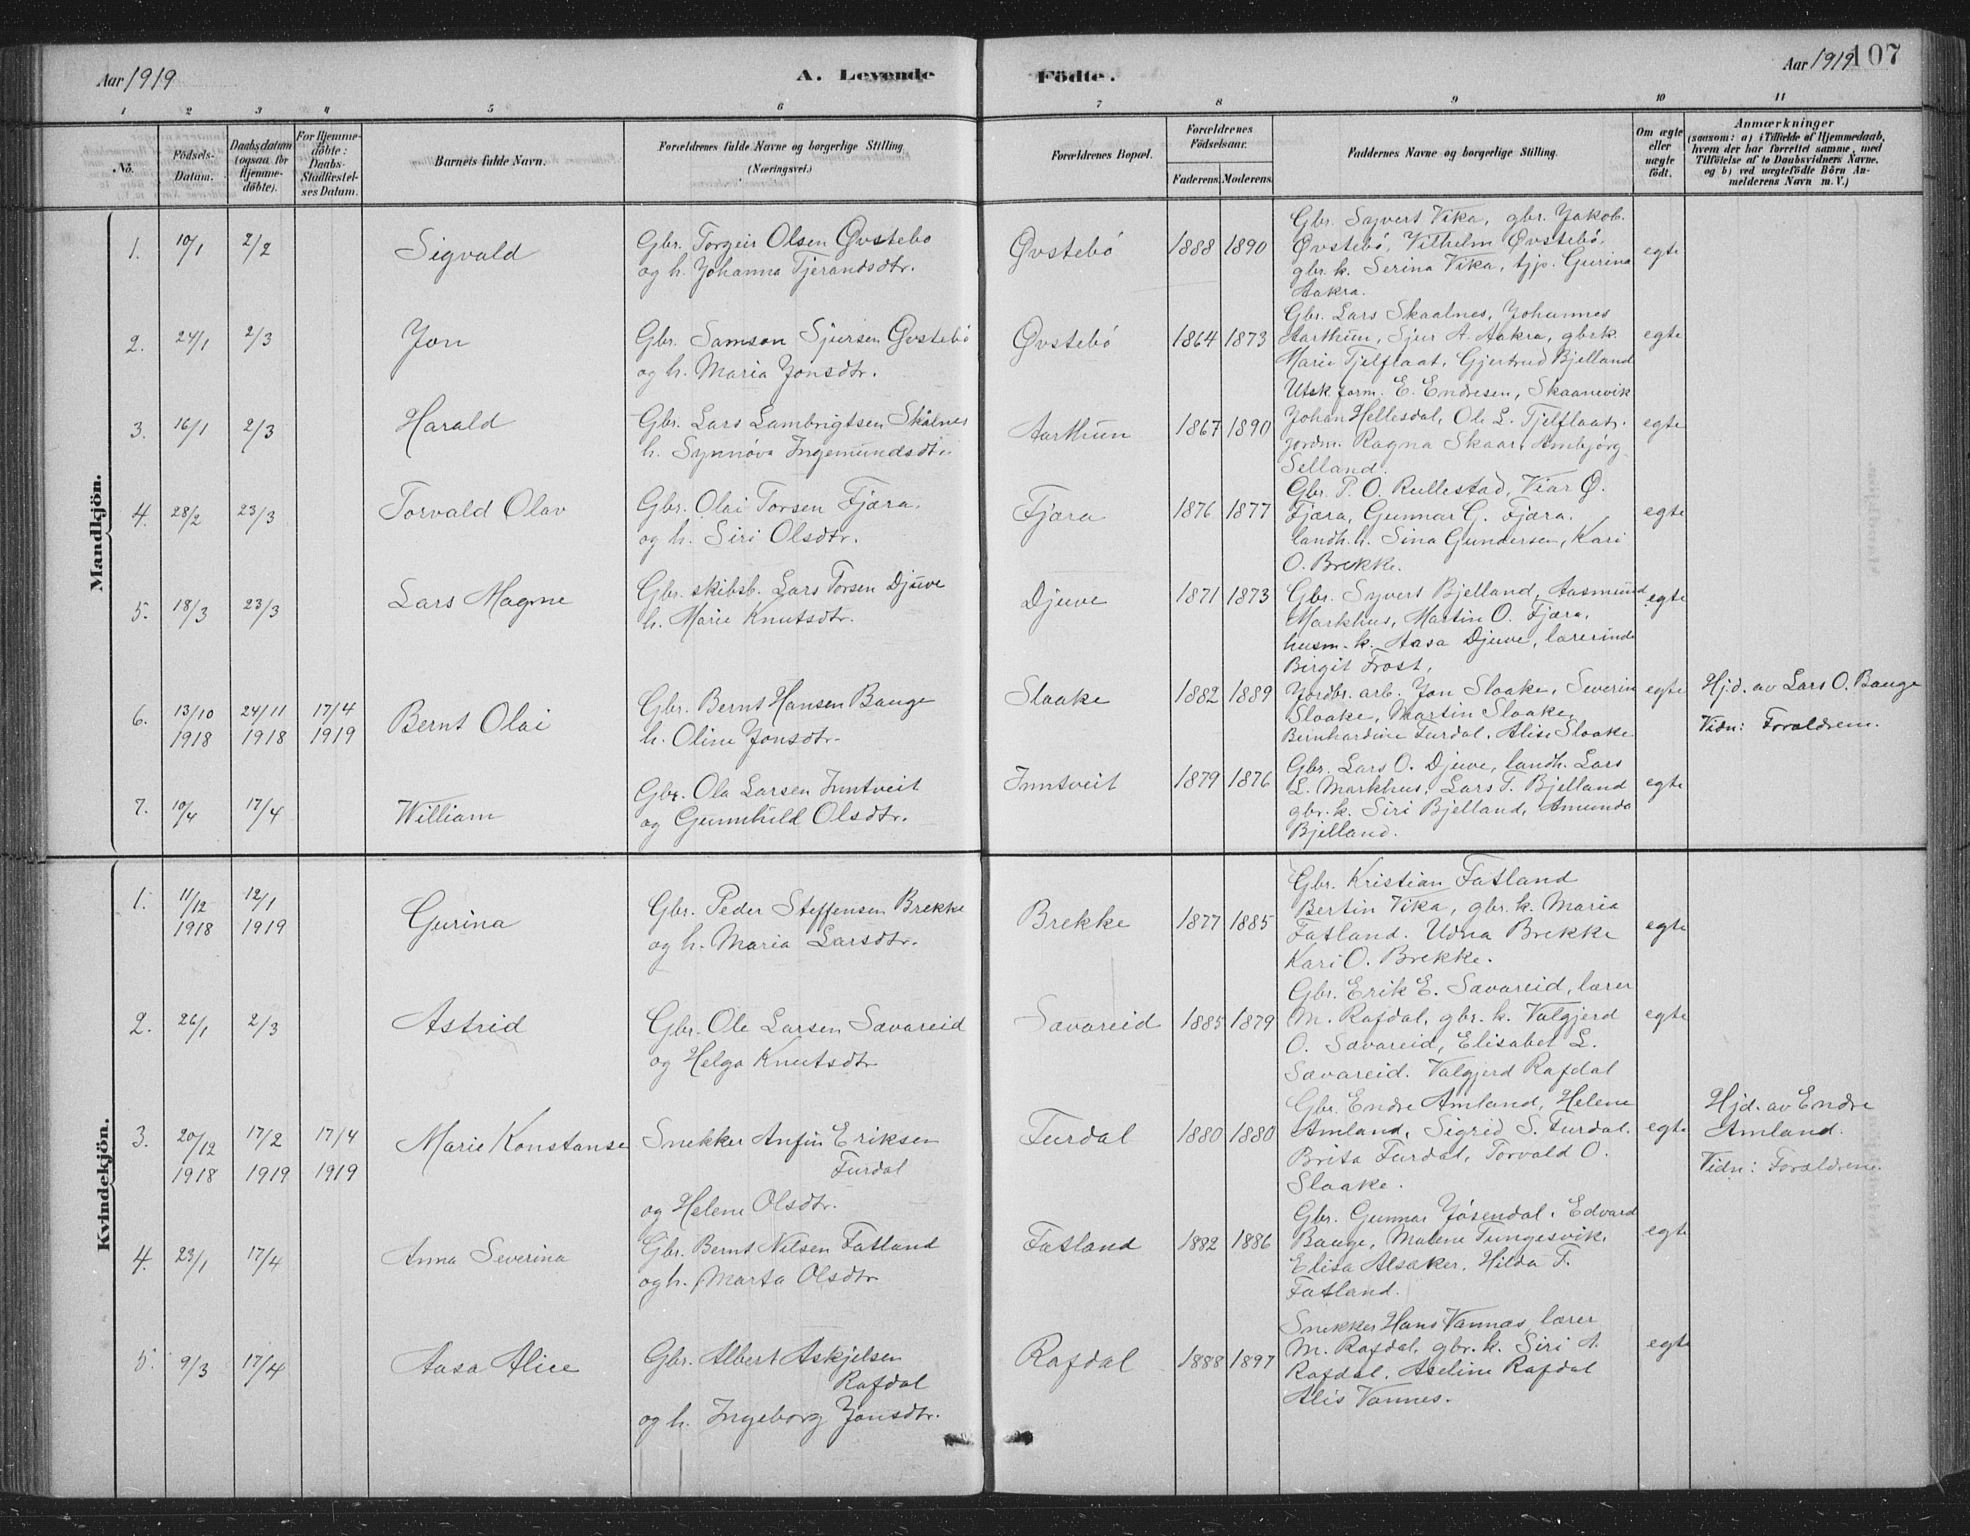 Aar 1919
A. Levende
Födte.
Aar 1919
107
1 2 3 4 5 6 7 8 9 10 11
No.
Födsels-
Datum.
Daabsdatum
(ogsaa for
Hjemme-
döbte).
For Hjemme-
döbte:
Daabs-
Stadfæstel-
ses Datum.
Barnets fulde Navn.
Forældrenes fulde Navne og borgerlige Stilling
(Næringsvei.)
Forældrenes Bopæl.
Forældrenes
Födselsaar.
Faderens.
Moderens.
Faddernes Navne og borgerlige Stilling.
Om ægte
eller
uægte
födt.
Anmærkninger
(saasom: a) i Tilfælde af Hjemmedaab,
hvem der har forrettet samme, med
Tilföielse af to Daabsvidners Navne,
og b) ved uægtefödte Börn An-
melderens Navn m. V.)
Mandkjön.
1. 10/1 2/2 Sigvald
Gbr. Torgeir Olsen Øvstebø
og h. Johanna Tjerandsdtr.
Øvstebö 1888 1890
Gbr. Syvert Vika, gbr. Jakob
Øvstebö, Vilhelm Øvstebö,
gbr. k. Serina Vika, tjp. Gurina
Aakra.
egte
2. 24/1 2/3 Jon
Gbr. Samson Sjursen Øvstebö
og h. Maria Jonsdtr.
Øvstebö 1864 1873
Gbr. Lars Skaalnes, Johannes
Aarthun, Sjur A. Aakra, gbrk.
Marie Tjelflaat, Gjertrud Bjelland
egte
3. 16/1 2/3 Harald
Gbr. Lars Lambrigtsen Skålnes
h. Synnöva Ingemundsdtr.
Aarthun 1867 1890
Utsk.form. E. Endresen, Skaanevik
Johan Hellesdal, Ole L. Tjelflaat,
jordm. Ragna Skaar, Ambjörg
Selland.
egte
4. 28/2 23/3 Torvald Olav
Gbr. Olai Torsen Fjæra,
og h. Siri Olsdtr.
Fjæra 1876 1877
Gbr. P. O. Rullestad, Viar Ø.
Fjæra, Gunnar G. Fjæra,
landh. h. Sina Gundersen, Kari
O. Brekke.
egte
5. 18/3 23/3 Lars Magne
Gbr. skibsb. Lars Torsen Djuve
h. Marie Knutsdtr.
Djuve 1871 1873
Gbr. Syvert Bjelland, Aasmund
Markhus, Martin O. Fjæra,
husm. k. Aasa Djuve, lærerinde
Birgit Frost.
egte
6. 13/10 1918 24/11 1918 17/4 1919 Bernt Olai
Gbr. Bernt Hansen Bauge
h. Oline Jonsdtr.
Slaake 1882 1889
Jordbr. arb. Jon Slaake, Severin
Slaake, Martin Slaake,
Bernhardine Furdal, Alise Slaake
egte
Hjd. av Lars O. Bauge
Vidn: Forældrene.
7. 10/4 17/4 William
Gbr. Ola Larsen Inntveit
og Gunnhild Olsdtr.
Inntveit 1879 1876
Gbr. Lars O. Djuve, landh. Lars
L. Markhus, Lars T. Bjelland
gbr. k. Siri Bjelland, Amunda
Bjelland.
egte
Kvindekjön.
1. 11/12 1918 12/1 1919 Gurina
Gbr. Peder Steffensen Brekke
og h. Maria Larsdtr.
Brekke 1877 1885
Gbr. Kristian Fatland
Bertin Vika, gbr. k. Maria
Fatland. Udna Brekke
Kari O. Brekke.
egte
2. 26/1 2/3 Astrid
Gbr. Ole Larsen Sævareid
og Helga Knutsdtr
Sævareid 1885 1879
Gbr. Erik E. Sævareid, lærer
M. Rafdal, gbr. k. Valgjerd
O. Sævareid, Elisabet L.
Sævareid. Valgjerd Rafdal
egte
3. 20/12 1918 17/2 1919 17/4 1919 Marie Konstanse
Snekker Anfin Eriksen
Furdal
og Helene Olsdtr.
Furdal 1880 1880
Gbr. Endre Amland, Helene
Amland, Sigrid S. Furdal.
Brita Furdal, Torvald O.
Slaake.
egte
Hjd. av Endre
Amland.
Vidn: Forældrene.
4. 23/1 17/4 Anna Severina
Gbr. Bernt Nilsen Fatland
og h. Marta Olsdtr
Fatland 1882 1886
Gbr. Gunnar Jösendal, Edvard
Bauge, Malene Tungesvik,
Elisa Alsaker, Hilda T.
Fatland.
egte
5. 9/3 17/4 Aasa Alice
Gbr. Albert Askjelsen
Rafdal
og h. Ingeborg Jonsdtr.
Rafdal 1888 1897
Snekker Hans Vannæs, lærer
M. Rafdal, gbr. k. Siri A.
Rafdal, Aseline Rafdal
Alis Vannes.
egte